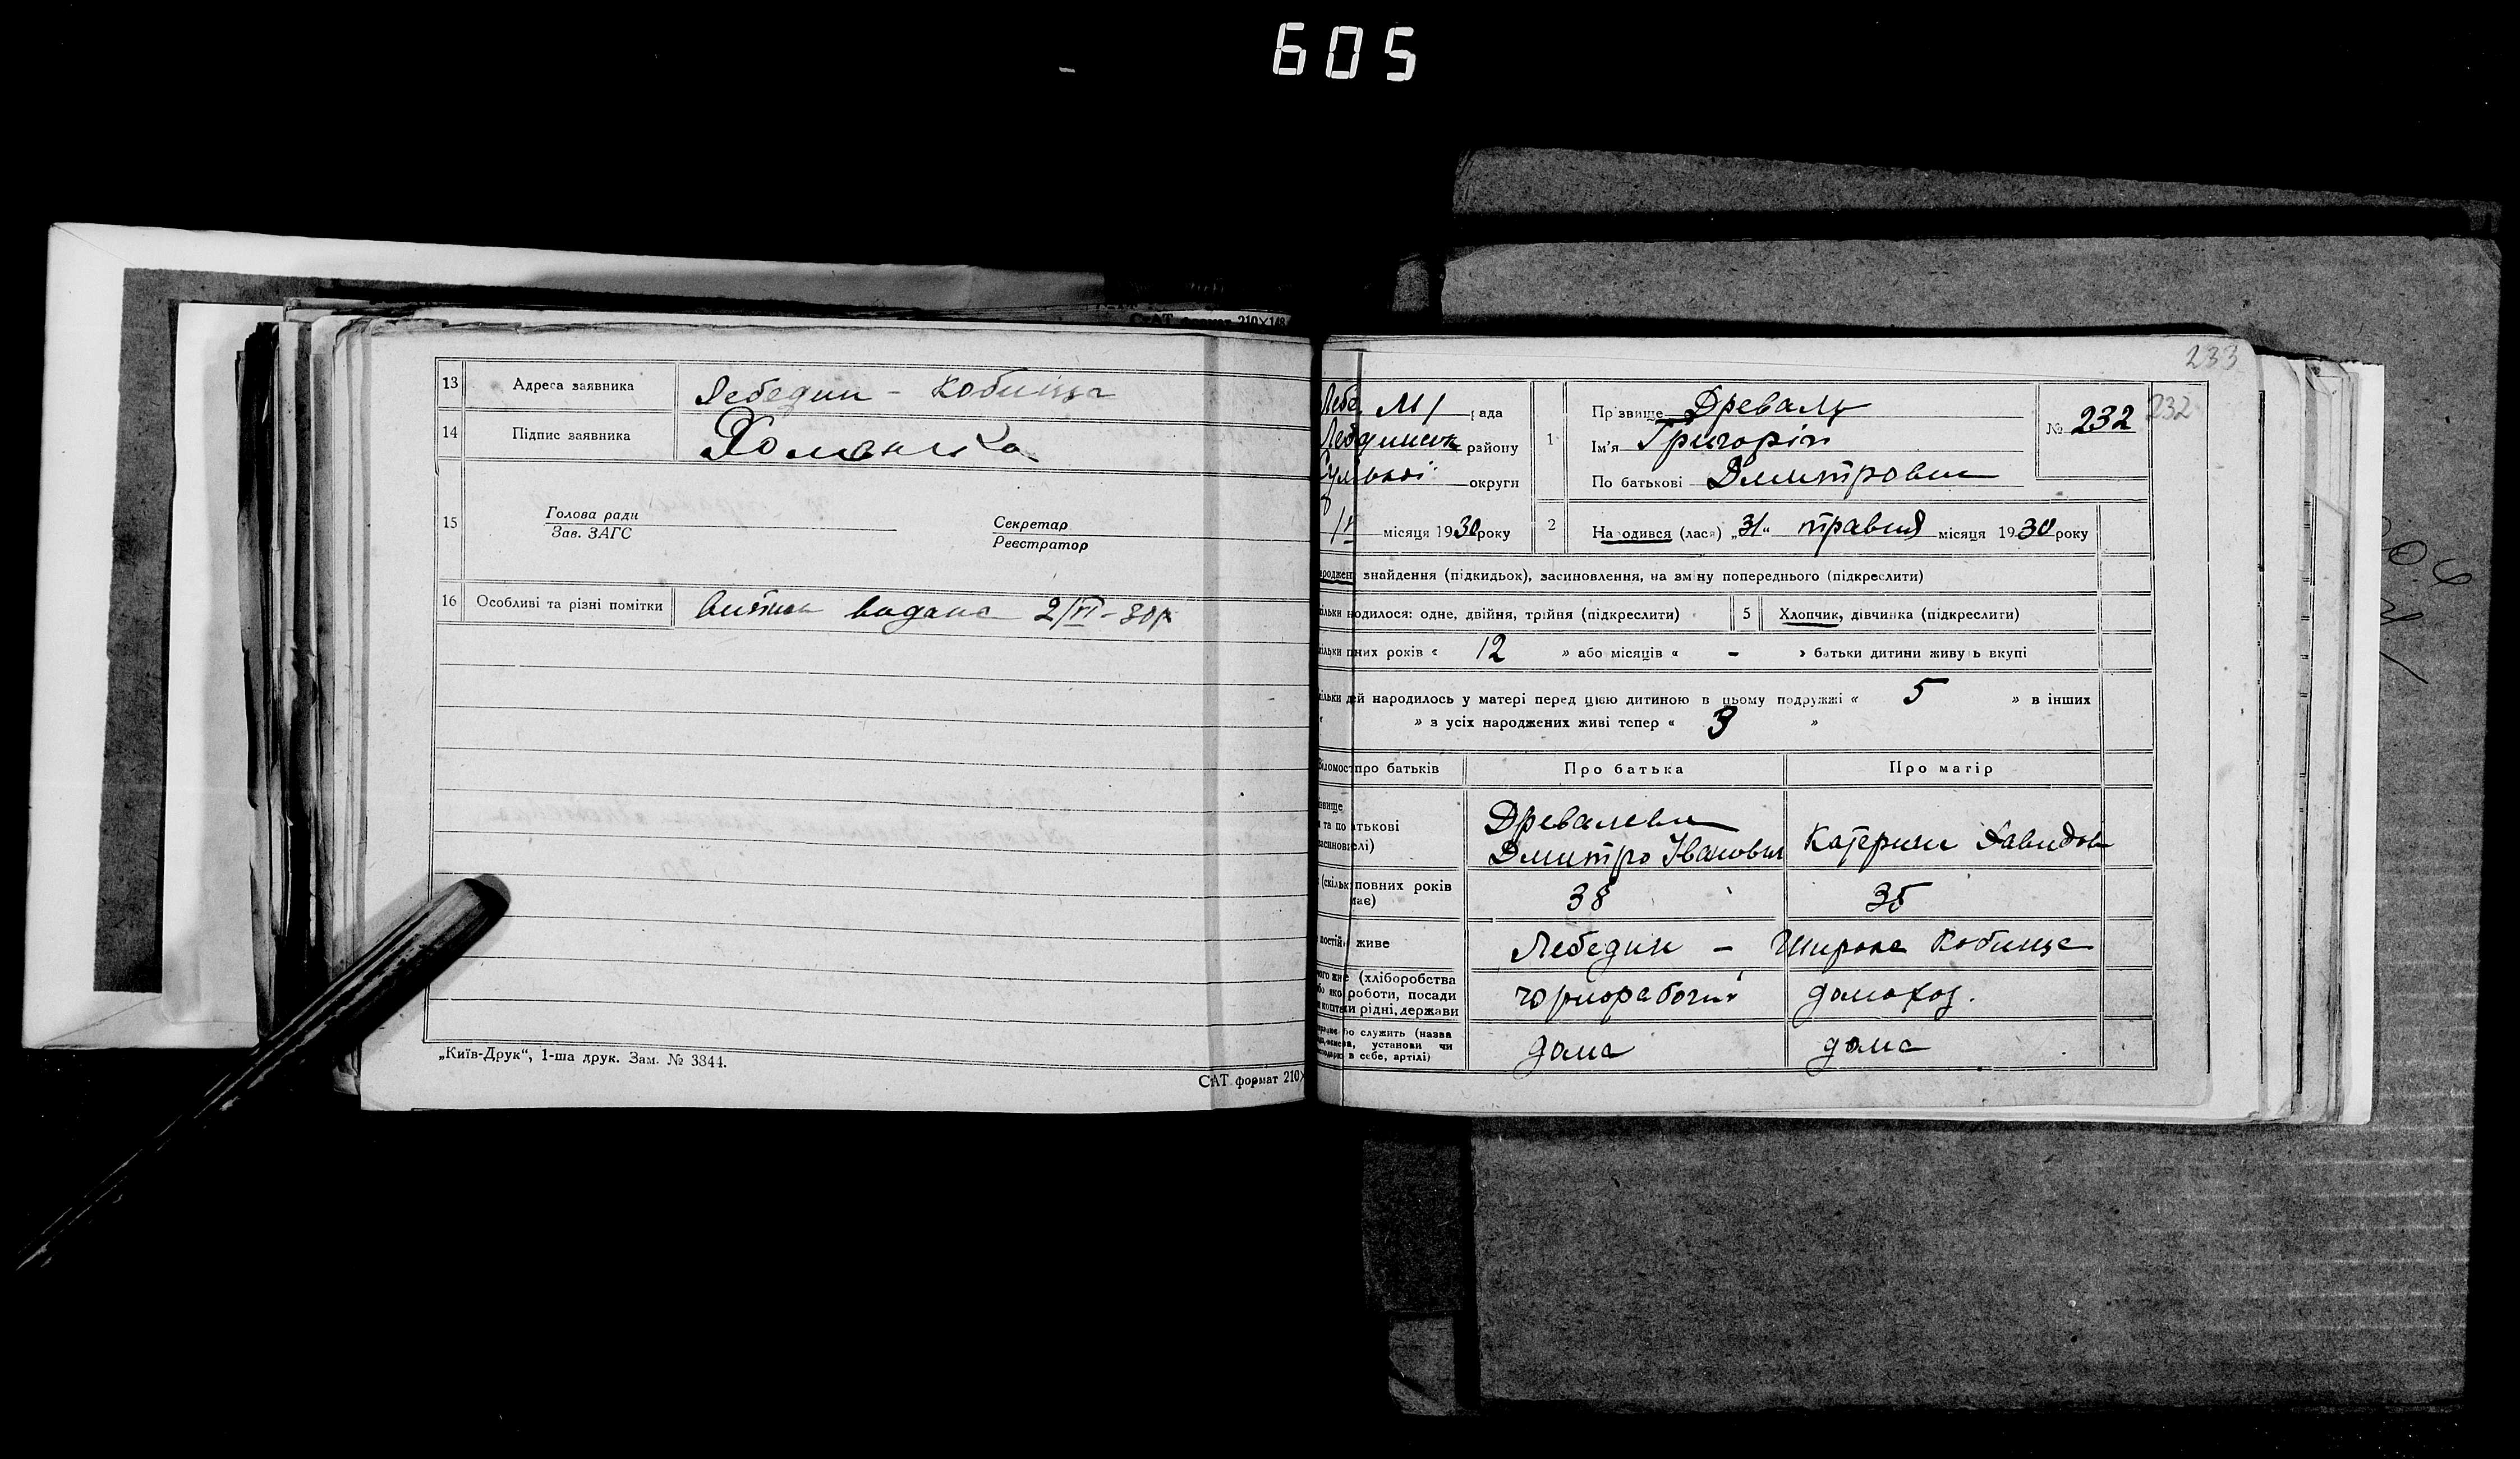 605
СтАТ формат 210×148
13 Адреса заявника Лебедин - Кобища
14 Підпис заявника Хоменка
15 Голова ради Секретар
Зав. ЗАГС Реєстратор
16 Особливі та різні помітки видана 2/VI-30р
„Київ-Друк“, 1-ша друк. Зам. № 3844.
СтАТ формат 210×
233
Лебе М/ рада
району
округи
місяця 1930 року
1 Прізвище Древаль
Ім'я Григорій
По батькові Дмитрович
№ 232
232
2 Народився (лася) „31“ травня місяця 1930 року
знайдення (підкидьок), засиновлення, на зміну попереднього (підкреслити)
родилося: одне, двійня, трійня (підкреслити) 5 Хлопчик, дівчинка (підкреслити)
повних років « 12 » або місяців « - » батьки дитини живуть вкупі
дітей народилось у матері перед цією дитиною в цьому подружжі « 5 » в інших
» з усіх народжених живі тепер « 3 »
про батьків Про батька Про матір
та по батькові
Древалеви
Дмитро Іванович Катерина Давидов
повних років
має) 38 35
постійно живе Лебедин - Широка Кобища
(хліборобства
роботи, посади
рідні, держави
чорноробочий домохоз.
служить (назва
установи чи
в себе, артілі)
дома дома